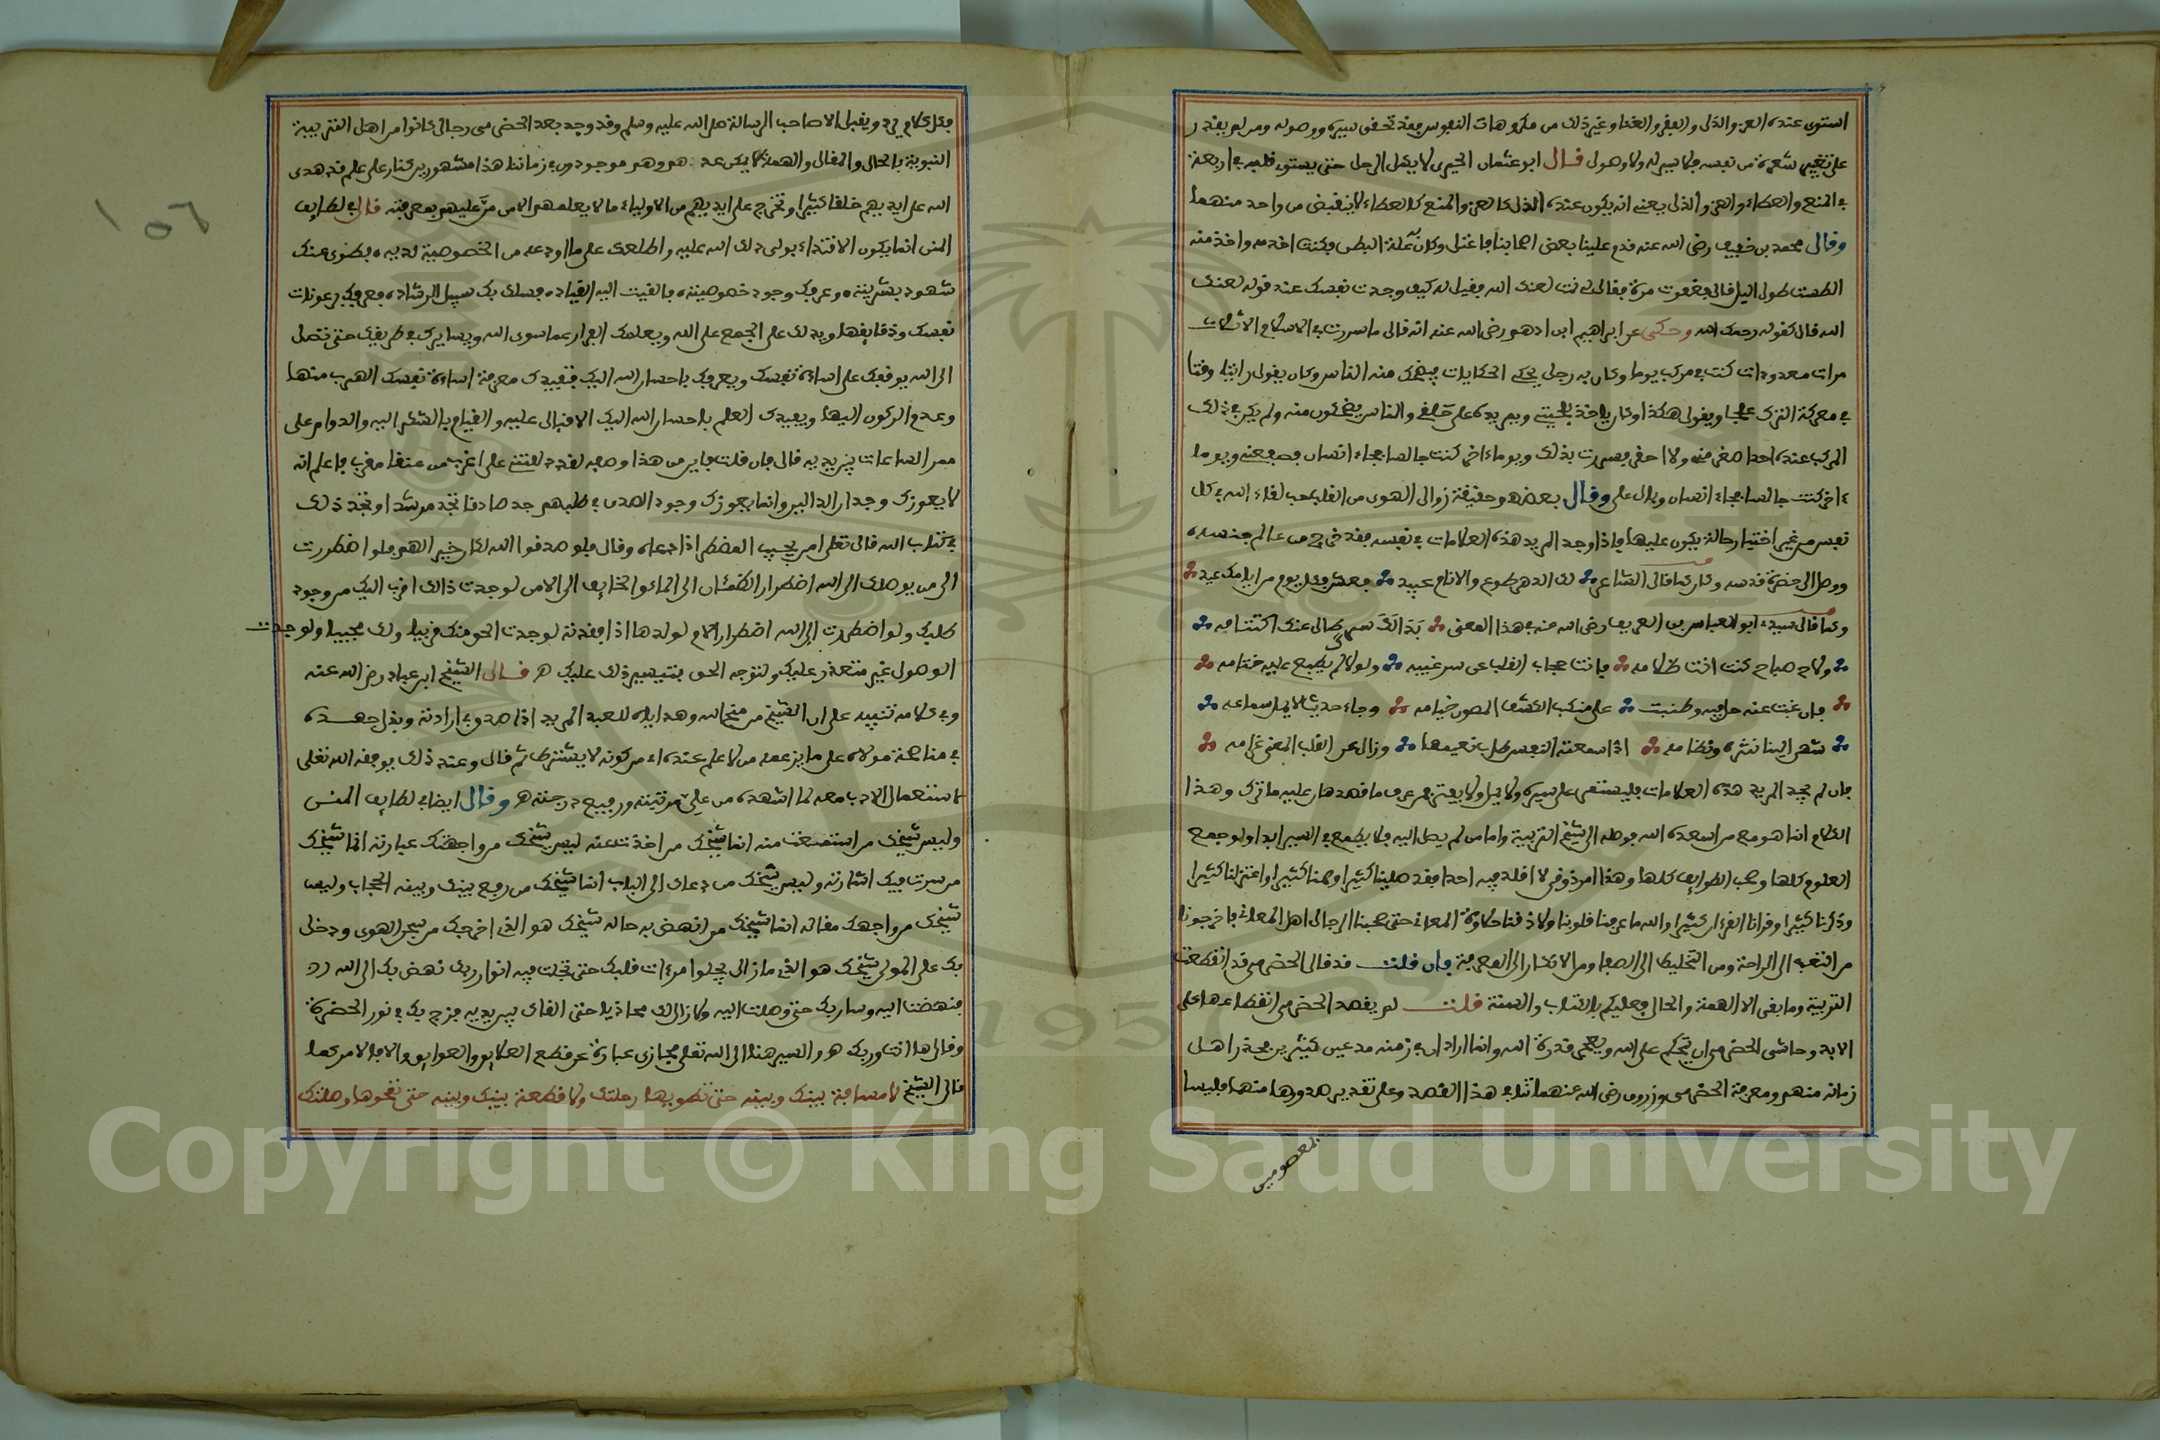 استوى عنده العز والذل والفقر والغنا وغير ذلك من مكروهات النفوس فقد تحقق سيره ووصوله ومن لم يقدر
على تغيير شعرة من نفسه فلا سير له ولا وصول قال ابو عثمان الحيرى لا يكمل الرجل حتى يستوى قلبه في اربعة
في المنع والعطاء والعز والذل يعني انه يكون عنده الذل كالعز والمنع كالعطاء لا ينقبض من واحد منهما
وقال محمد بن خفيف رضى الله عنه قدم علينا بعض اصحابنا فاعتل وكان به علة البطن فكنت اخدمه واخذ منه
الطست طول اليل قال فغفوت مرة فقال لي نمت لعنك الله فقيل له كيف وجدت نفسك عند قوله لعنك
الله قال كقوله رحمك الله وحكى عن ابراهيم ابن ادهم رضى الله عنه انه قال ما سررت في الاسلام الا ثلاث
مرات معدودات كنت في مركب يوما وكان به رجل يحكي الحكايات يضحك منه الناس وكان يقول رايت وقتا
في معركة الترك علجا ويقول هكذا وكان ياخذ بلحيتي ويمر يده على حلقي والناس يضحكون منه ولم يكن في ذلك
المركب عنده احد اصغر مني ولا احقر فسررت بذلك ويوما اخر كنت جالسا فجاء انسان وصفعني ويوما
اخر كنت جالسا فجاء انسان وبال علي وقال بعضهم حقيقة زوال الهوى من القلب حب لقاء الله في كل
نفس من غير اختيار حالة يكون عليها فاذا وجد المريد هذه العلامات في نفسه فقد خرج من عالم جنسه
ووصل الى حضرة قدسه وكان كما قال الشاعر لك الدهر طوع والانام عبيد فعش كل يوم من ايامك عيد
وكما قال سيدي ابو العباس بن العريف رضى الله عنه في هذا المعنى بَدَا لَكَ سر طال عنك اكتتامه
ولاح صباح كنت انت ظلامه فانت حجاب القلب عن سر غيبه ولولاك لم يطبع عليه ختامه
فان غبت عنه حل فيه وطنبت على منكب الكشف المصون خيامه وجاء حديث لا يمل سماعه
شهي الينا نثره ونظامه اذا سمعته النفس طاب نعيمها وزال عن القلب المعنى غرامه
فان لم يجد المريد هذه العلامات فليستقم على سيره ولا يمل ولا يفتر فمن عرف ما قصد هان عليه ما ترك وهذا
الكلام انما هو مع من اسعده الله بوصله الى شيخ التربية واما من لم يصل اليه فلا يطمع في السير ابدا ولو جمع
العلوم كلها وصحب الطوائف كلها وهذا امر ذوقي لا اقلد فيه احدا فقد صلينا كثيرا وصمنا كثيرا واعتزلنا كثيرا
وذكرنا كثيرا وقرانا القرءان كثيرا والله ما عرفنا قلوبنا ولا ذقنا حلاوة المعاني حتى صحبنا الرجال اهل المعاني فاخرجونا
من التعب الى الراحة ومن التخليط الى الصفا ومن الانكار الى المعرفة فان قلت قد قال الحضرمي قد انقطعت
التربية وما بقي الا الهمة والحال فعليكم بالكتاب والسنة قلت لم يقصد الحضرمي انقطاعها على
الابد وحاشى الحضرمي ان يتحكم على الله ويعجز قدرة الله وانما اراد ان في زمنه مدعين كثيرين فحذر اهل
زمانه منهم ومعرفة الحضرمي وزروق رضى الله عنهما تنافي هذا القصد وعلى تقدير صدورها منهما فليسا
بمعصومين
فكل كلام يرد ويقبل الا صاحب الرسالة صلى الله عليه وسلم وقد وجد بعد الحضرمي رجال كانوا من اهل التربية
النبوية بالحال والمقال والهمة لا يمكن عدهم وهم موجودون في زماننا هذا مشهورين كنار على علم قد هدى
الله على ايديهم خلقا كثيرا وتخرج على ايديهم من الاولياء ما لا يعلمهم الا من مَنّ عليهم بمعرفته قال في لطائف
المنن انما يكون الاقتداء بولي دلك الله عليه واطلعك على ما اودعه من الخصوصية لديه فطوى عنك
شهود بشريته وعرفك وجود خصوصيته فالقيت اليه القياد فسلك بك سبيل الرشاد فعرفك برعونات
نفسك ودفائنها ويدلك على الجمع على الله ويعلمك الفرار عما سوى الله ويسايرك في طريقك حتى تصل
الى الله يوقفك على اساءة نفسك ويعرفك باحسان الله اليك فتفيدك معرفة اساءة نفسك الهرب منها
وعدم الركون اليها ويفيدك العلم باحسان الله اليك الاقبال عليه والقيام بالشكر اليه والدوام على
ممر الساعات بين يديه قال فان قلت فاين من هذا وصفه لقد دللتني على اغرب من عنقا مغرب فاعلم انه
لا يعوزك وجدان الدالين وانما يعوزك وجود الصدق في طلبهم جد صادقا تجد مرشدا وتجد ذلك
في كتاب الله قال تعلى امن يجيب المضطر اذا دعاه وقال فلو صدقوا الله لكان خيرا لهم فلو اضطررت
الى من يوصلك الى الله اضطرار الظمئان الى الماء والخائف الى الامن لوجدت ذالك اقرب اليك من وجود
طلبك ولو اضطررت الى الله اضطرار الام لولدها اذا فقدته لوجدت الحق منك قريبا ولك مجيبا ولوجدت
الوصول غير متعذر عليك ولتوجه الحق بتيسير ذلك عليك هـ قال الشيخ ابن عباد رضى الله عنه
وفي كلامه تنبيه على ان الشيخ من منح الله وهداياه للعبد المريد اذا صدق في ارادته وبذل جهده
في مناصحة مولاه على ما يزعمه من لا علم عنده اي من كونه لا يشترط ثم قال وعند ذلك يوفقه الله تعلى
لاستعمال الادب معه لما اشهده من عليّ مرتبته ورفيع درجته هـ وقال ايضا في لطائف المنن
وليس شيخك من استمعت منه انما شيخك من اخذت عنه ليس شيخك من واجهتك عبارته انما شيخك
من سرت فيك اشارته وليس شيخك من دعاك الى الباب انما شيخك من رفع بينك وبينه الحجاب وليس
شيخك من واجهك مقاله انما شيخك من انهض به حاله شيخك هو الذي اخرجك من سجن الهوى ودخل
بك على المولى شيخك هو الذي ما زال يجلوا مرءات قلبك حتى تجلت فيه انوار ربك نهض بك الى الله
فنهضت اليه وسار بك حتى وصلت اليه ولا زال لك محاذيا حتى القاك بين يديه فزج بك في نور الحضرة
وقال ها انت وربك هـ والسير هنا الى الله تعلى مجازي عبارة عن قطع العلائق والعوائق والا فالامر كما
قال الشيخ لا مسافة بينك وبينه حتى تطويها رحلتك ولا قطعة بينك وبينه حتى تمحوها وصلتك
١٥٦
Copyright © King Saud University
1957